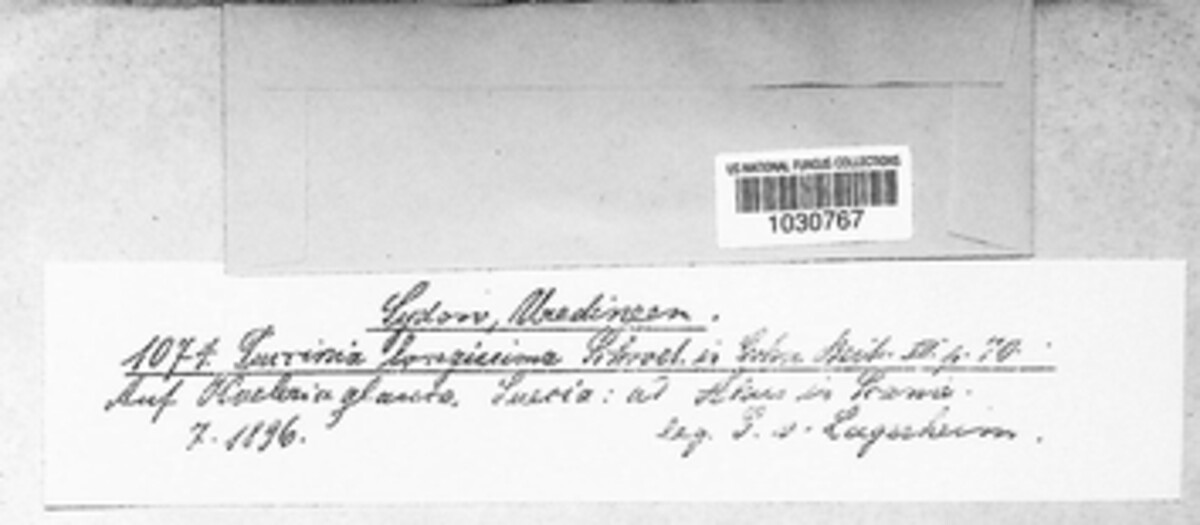 US NATIONAL FUNGUS COLLECTIONS
1030767
Sydow, Uredineen.
1074. Puccinia longissima Schroet. in Cohn Beitr. III. p. 70.
Auf Koeleria glauca. Suecia: ad Åhus in Scania.
7. 1896.
leg. G. v. Lagerheim.